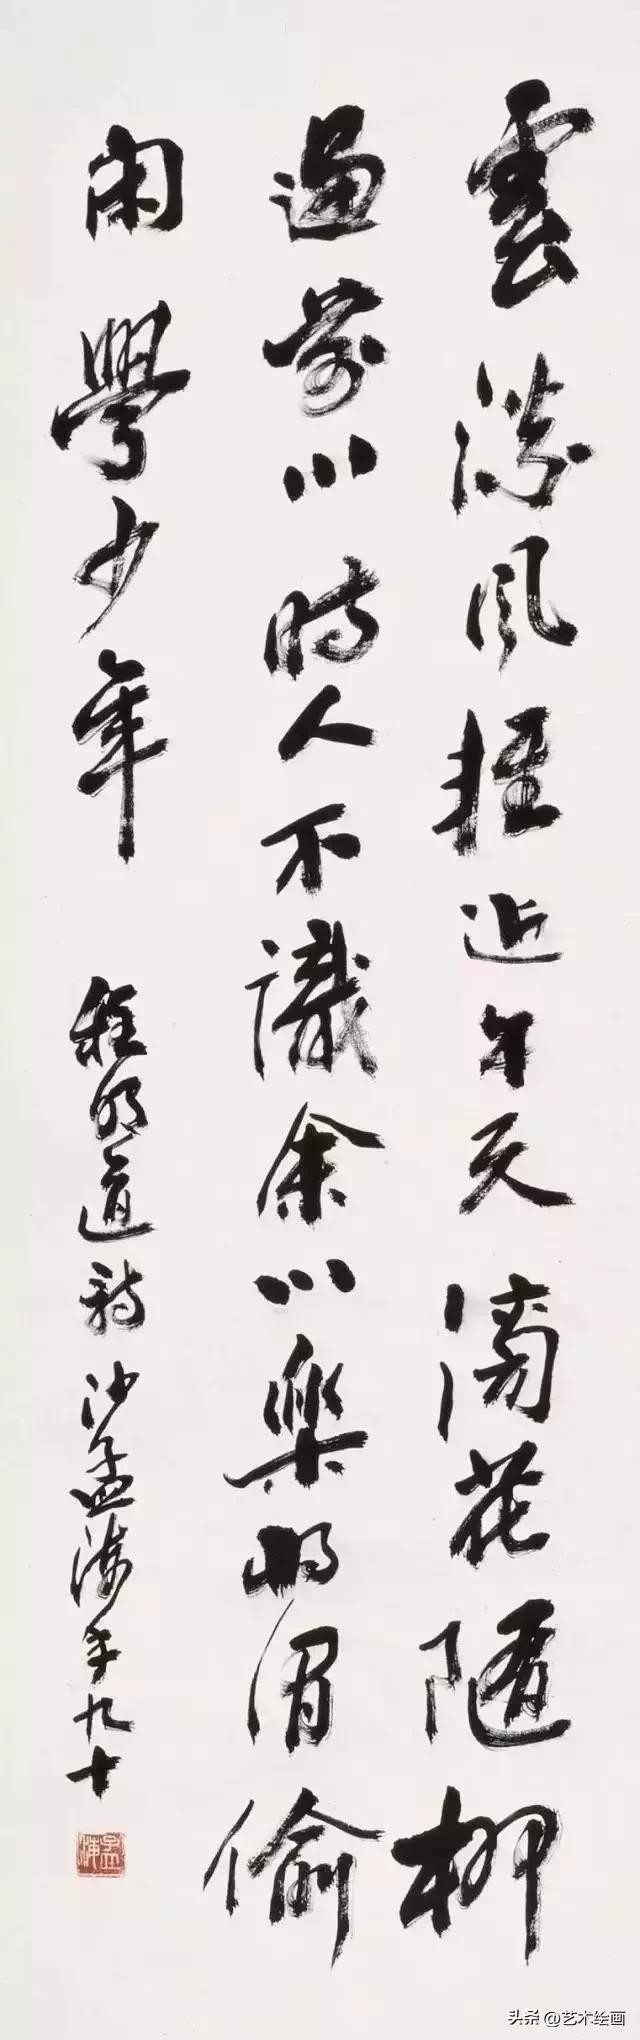 雲淡風輕近午天傍花隨柳
過前川時人不識余心樂將謂偷
閑學少年 程明道詩 沙孟海年九十
孟海
头条 @艺术绘画